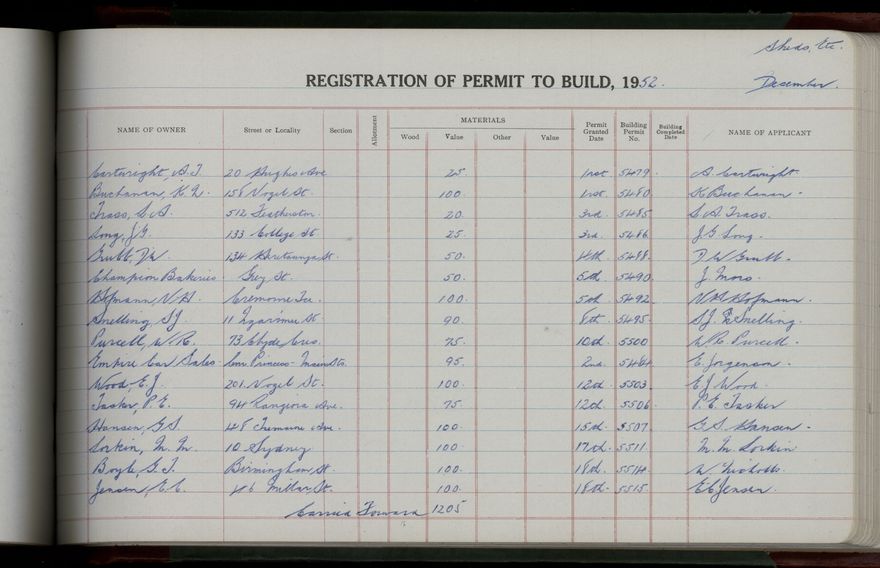 Sheds, Etc.
REGISTRATION OF PERMIT TO BUILD, 1952.
December.
NAME OF OWNER Street or Locality Section Allotment MATERIALS Wood Value Other Value Permit Granted Date Building Permit No. Building Completed Date NAME OF APPLICANT
Cartwright, A.J. 20 Hughes Ave 25. 1rst. 5479. A. Cartwright.
Buchanan, K. 158 Vogel St. 100. 1rst. 5480. K Buchanan.
Trass, S.A. 512 Featherston. 20. 3rd. 5485. S A Trass.
Song, J G. 133 College St 25. 3rd. 5486. J G Song.
Grubb, D W. 134 St. 50. 4th. 5488. D W Grubb.
Champion Bakeries Grey St. 50. 5th. 5490. J.
Hofmann, V H. Cremorne Tce. 100. 5th. 5492. V H Hofmann.
Snelling, S J. 11 St. 90. 8th. 5495. S J Snelling.
Purcell, W R. 73 Clyde Cres. 75. 10th. 5500 W R Purcell.
Empire Car Sales. Cnr. Princess - Main Sts. 95. 2nd. 5484. E Jorgenson.
Wood, E J. 201. Vogel St. 100. 12th. 5503. E J Wood.
Tasker, P. E. 94 Rangiora Ave. 75. 12th. 5506. P. E. Tasker
Hansen, G S. 48 Tremaine Ave. 100. 15th. 5507. G S. Hansen.
Sorkin, M. M. 10 Sydney 100. 17th. 5511. M. M. Sorkin
Boyle, G. J. Birmingham St. 100. 18th. 5514. W. Nicholls.
Jensen, E. C. 46 Millar St. 100. 18th. 5515. E C Jensen.
Carried Forward 1205